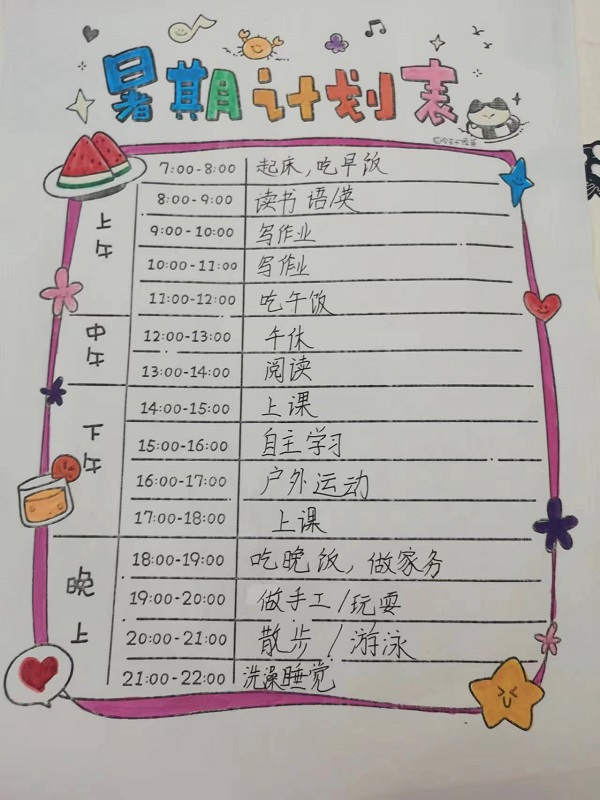 暑期计划表
上午
7:00-8:00 起床,吃早饭
8:00-9:00 读书 语/英
9:00-10:00 写作业
10:00-11:00 写作业
11:00-12:00 吃午饭
中午
12:00-13:00 午休
13:00-14:00 阅读
下午
14:00-15:00 上课
15:00-16:00 自主学习
16:00-17:00 户外运动
17:00-18:00 上课
晚上
18:00-19:00 吃晚饭,做家务
19:00-20:00 做手工/玩耍
20:00-21:00 散步/游泳
21:00-22:00 洗澡睡觉